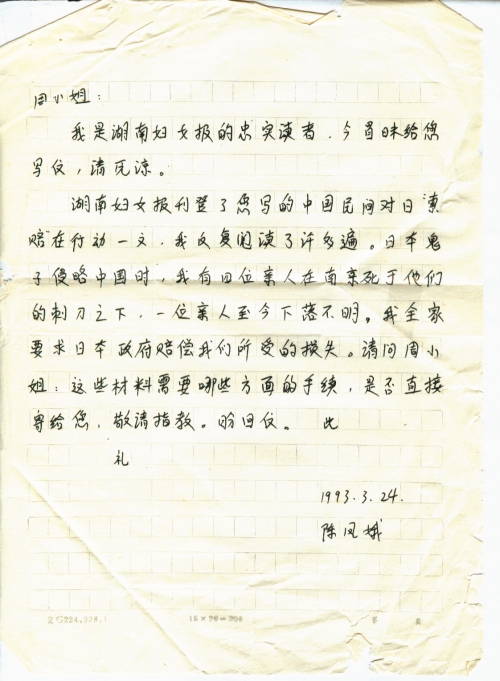 周小姐：
我是湖南妇女报的忠实读者．今冒昧给您
写仪，请谅。
湖南妇女报刊登了您写的中国民间对日索
赔在行动一文，我反复阅读了许多遍。日本鬼
子侵略中国时，我有四位亲人在南京死于他们
的刺刀之下，一位亲人至今下落不明。我全家
要求日本政府赔偿我们所受的损失。请问周小
姐：这些材料需要哪些方面的手续，是否直接
寄给您，敬请指教。盼回仪。 此
礼
1993.3.24.
陈凤娥